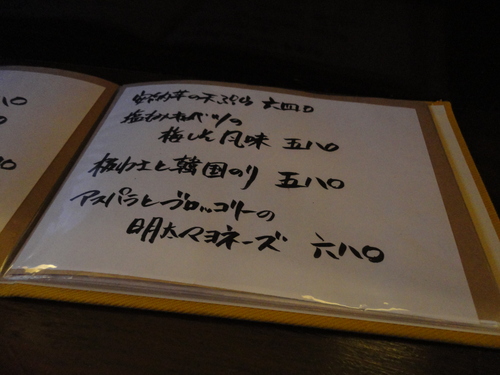 安納芋の天ぷら 六四〇
塩もみキャベツの
梅しそ風味 五八〇
梅クと韓国のり 五八〇
アスパラとブロッコリーの
明太マヨネーズ 六八〇